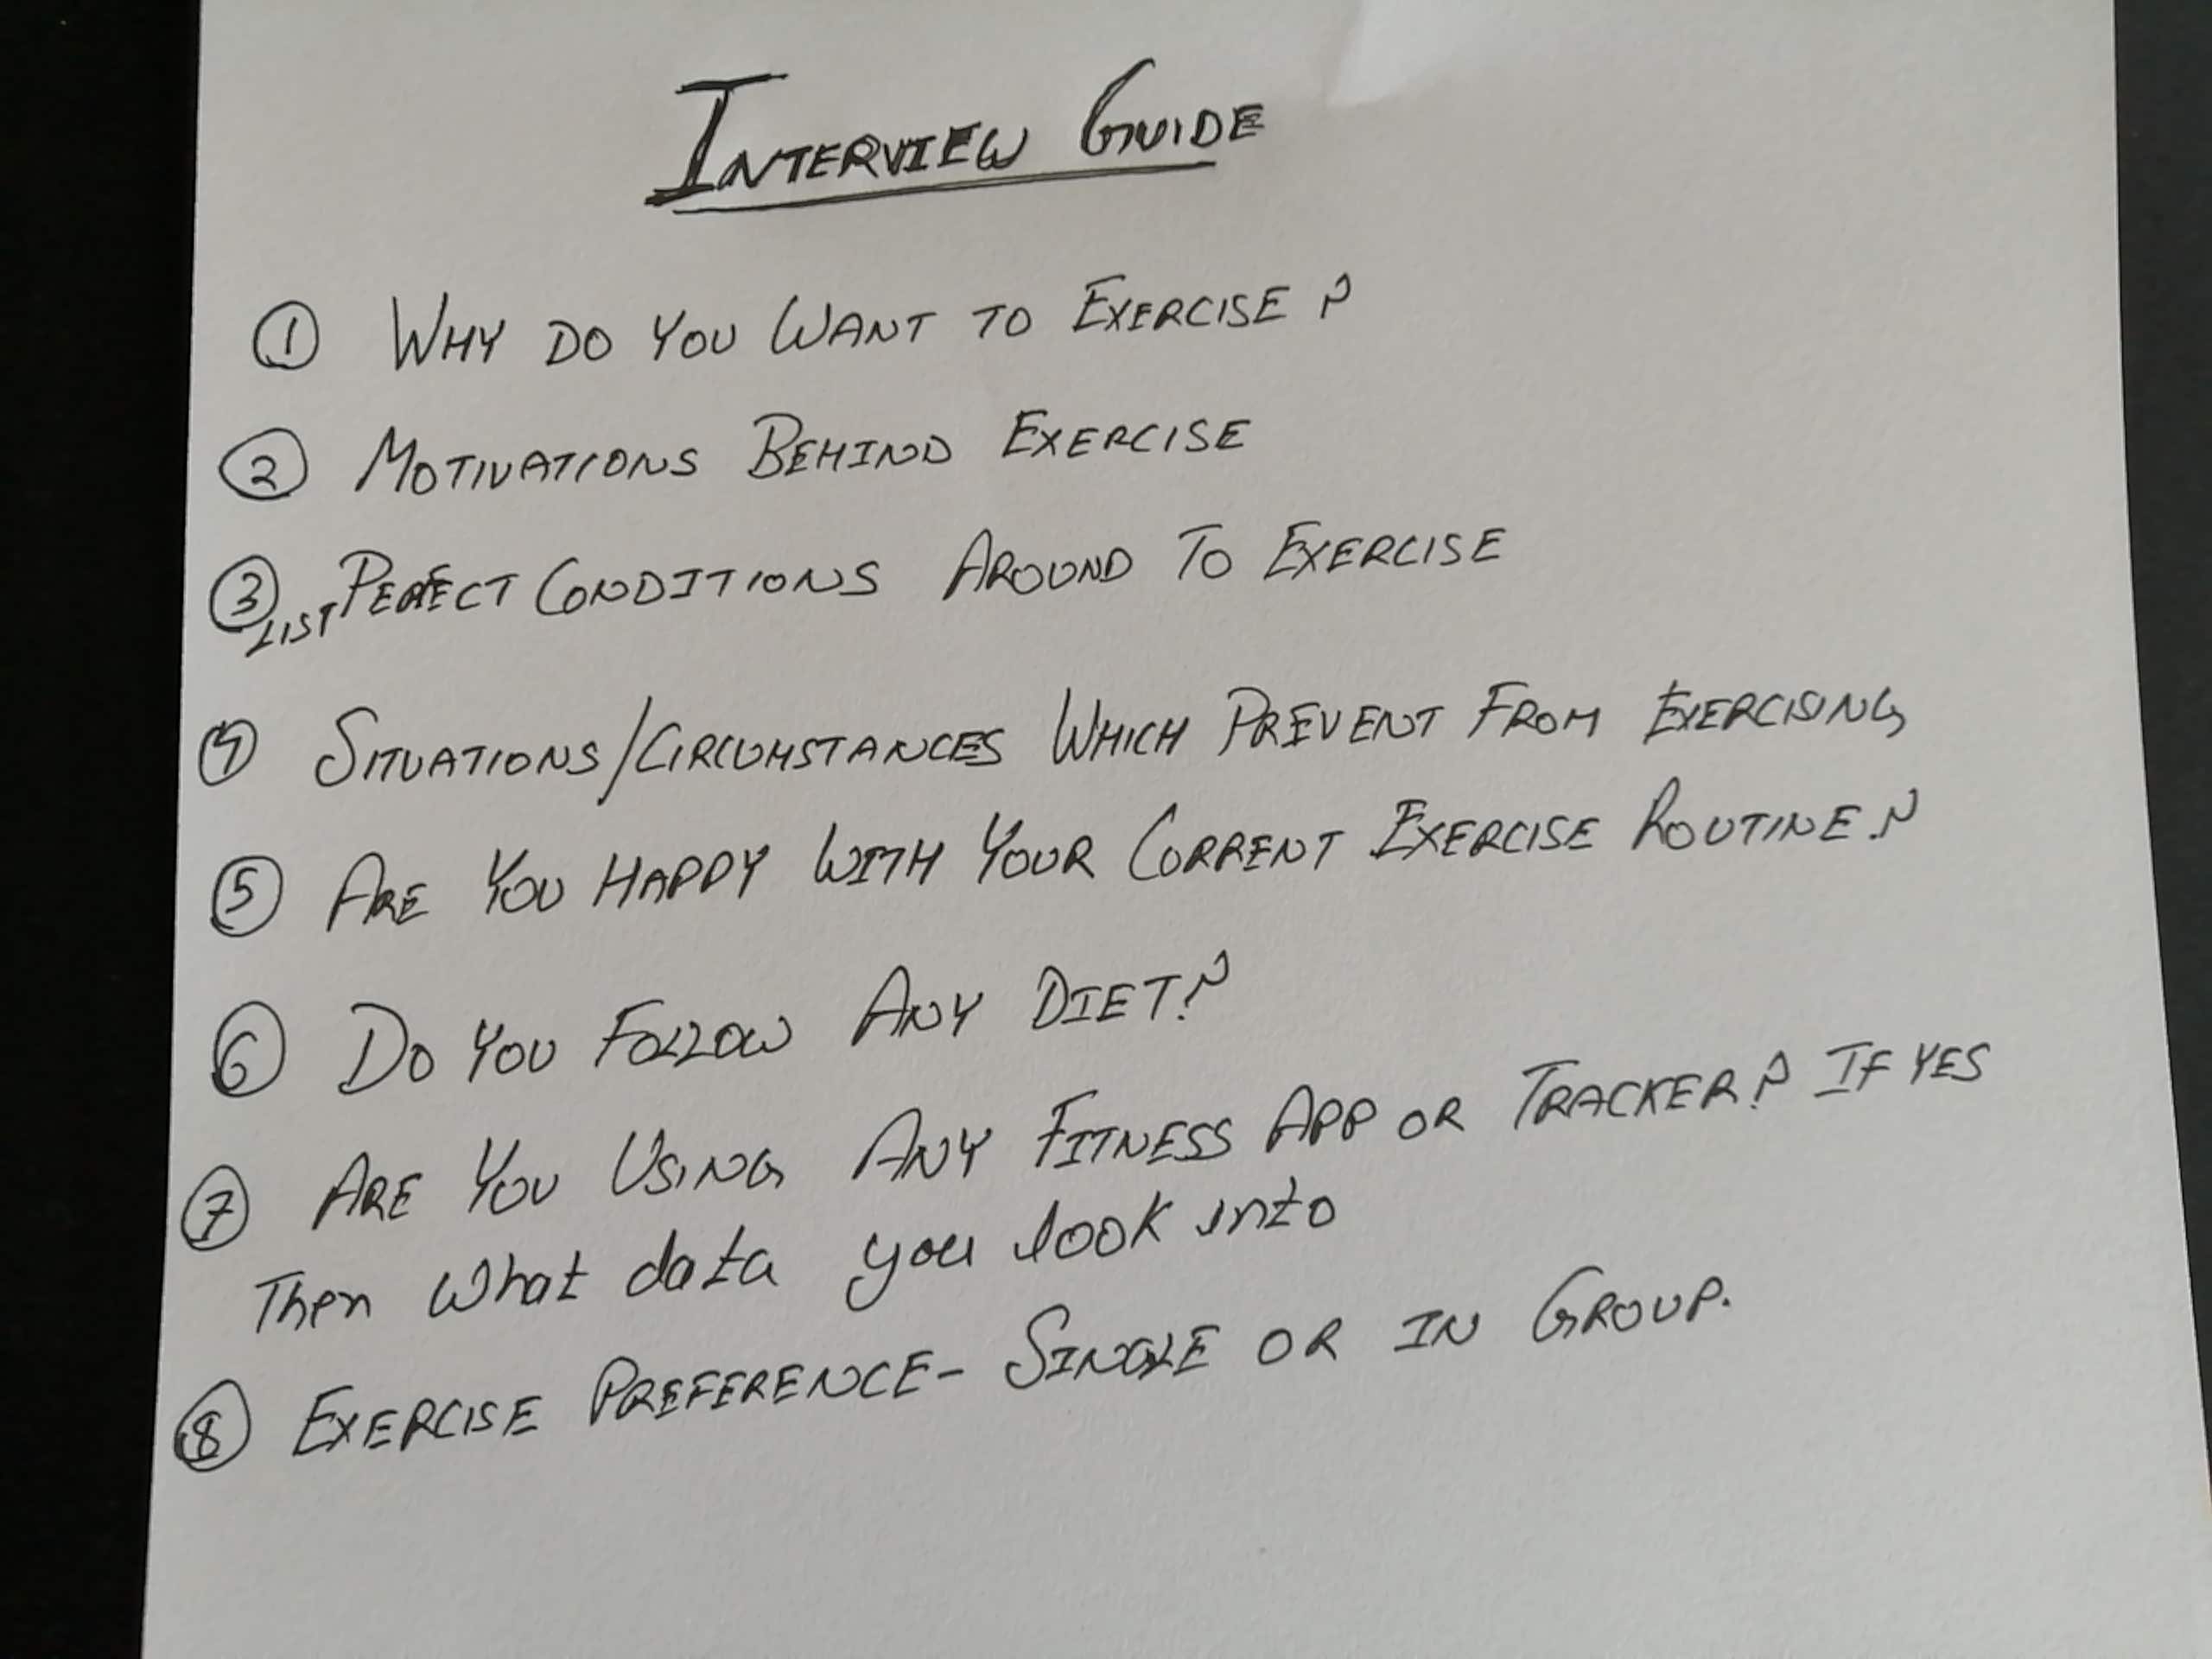 INTERVIEW GUIDE
① WHY DO YOU WANT TO EXERCISE ?
② MOTIVATIONS BEHIND EXERCISE
③ LIST PERFECT CONDITIONS AROUND TO EXERCISE
④ SITUATIONS/CIRCUMSTANCES WHICH PREVENT FROM EXERCISING
⑤ ARE YOU HAPPY WITH YOUR CURRENT EXERCISE ROUTINE ?
⑥ DO YOU FOLLOW ANY DIET?
⑦ ARE YOU USING ANY FITNESS APP OR TRACKER? IF YES
Then what data you look into
⑧ EXERCISE PREFERENCE- SINGLE OR IN GROUP.